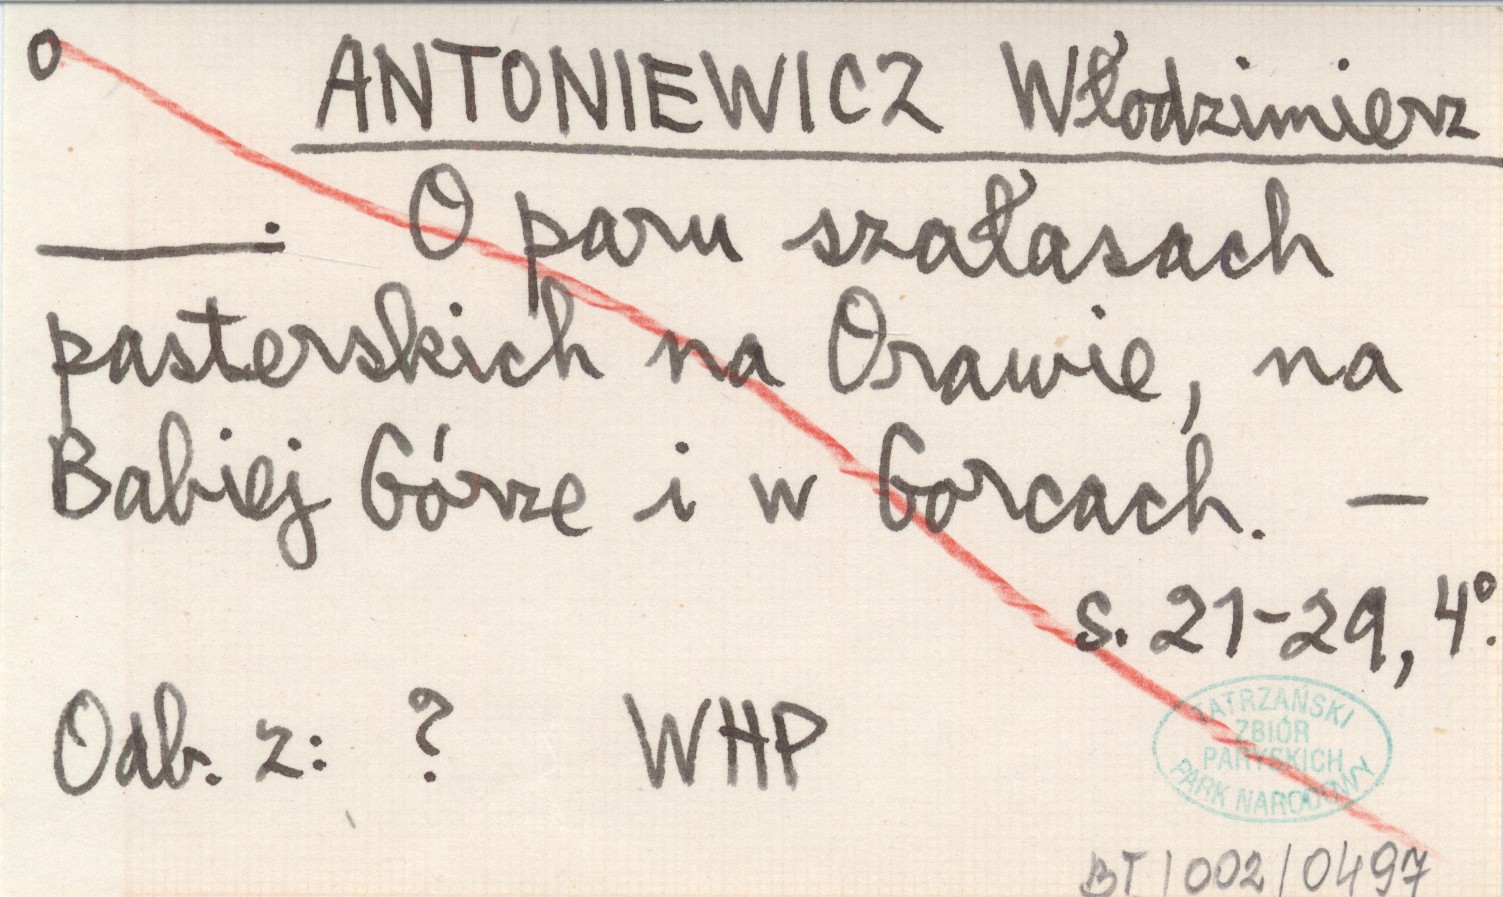 o ANTONIEWICZ Włodzimierz
_____: O paru szałasach
pasterskich na Orawie, na
Babiej Górze i w Gorcach. —
s. 21-29, 4°.
Odb. z: ? WHP
TATRZAŃSKI
ZBIÓR
PARYSKICH
PARK NARODOWY
BT/002/0497